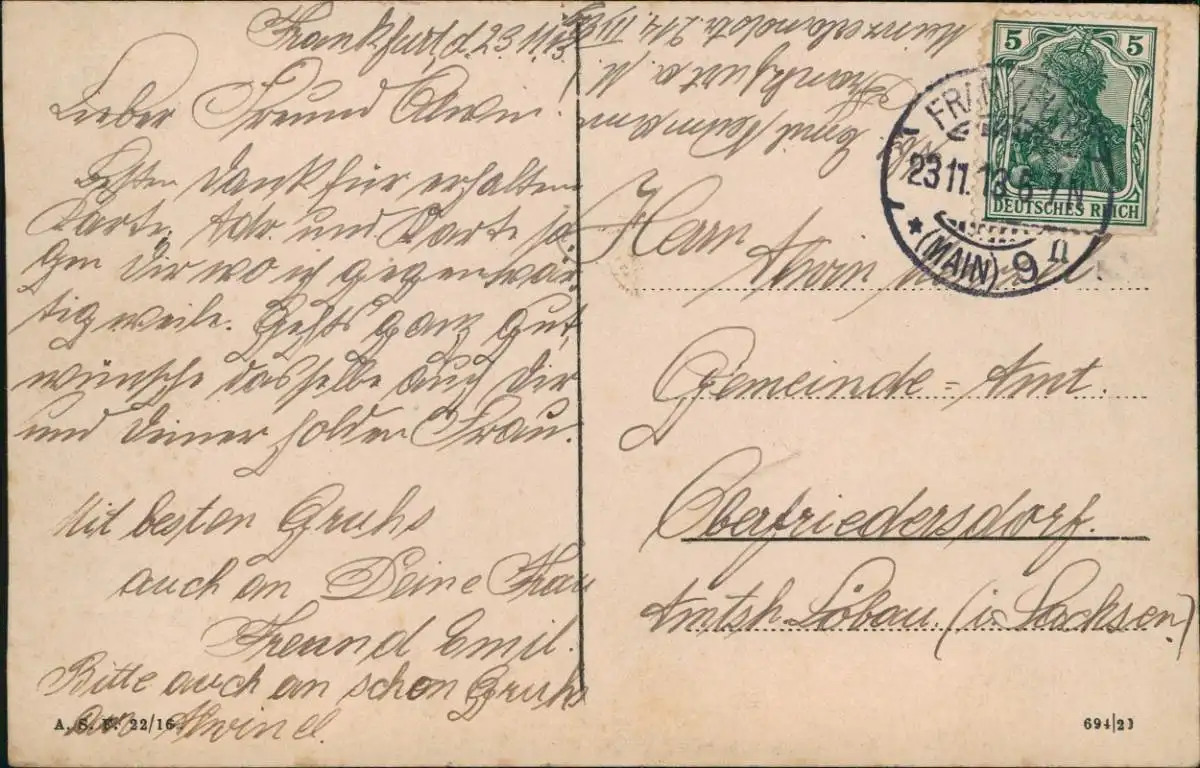 Frankfurt d. 23.11.13
Lieber Freund Alwin!
Besten Dank für erhaltene
Karte. Adr. und Karte sa-
gen Dir wo ich gegenwär-
tig weile. Gehts ganz gut,
wünsche dasselbe auch Dir
und Deiner holden Frau.
Mit besten Gruhs
auch an Deine Frau
Freund Emil.
Bitte auch an schön Gruhs
an Alwine.
A. S. F. 22/16
Emil
Frankfurt a. M.
5 5
DEUTSCHES REICH
FRANKFURT
23 11. 13. 6-7 N
* (MAIN) 9 n
Herrn
Alwin
Gemeinde-Amt.
Oberfriedersdorf.
Amtsh. Löbau (i. Sachsen)
694/23